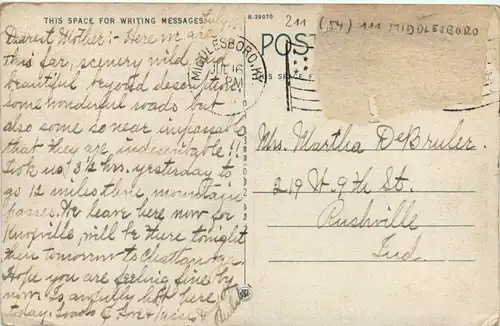 THIS SPACE FOR WRITING MESSAGES
R-39070
211 (54) 111 MIDDLESBORO
POST
MIDDLESBORO, KY.
16
PM
July
Dearest Mother:- Here we are
this far, scenery wild and
beautiful beyond description
some wonderful roads but
also some so near impassable
that they are indescribable!!
Took us 3½ hrs. yesterday to
go 12 miles thru mountain
passes. We leave here now for
Knoxville, will be there tonight
then tomorrow to Chattanooga.
Hope you are feeling fine by
now. Is awfully hot here
today. Loads of Love + kisses
Mrs. Martha DeBruler.
219 W. 9th St.
Rushville
Ind.